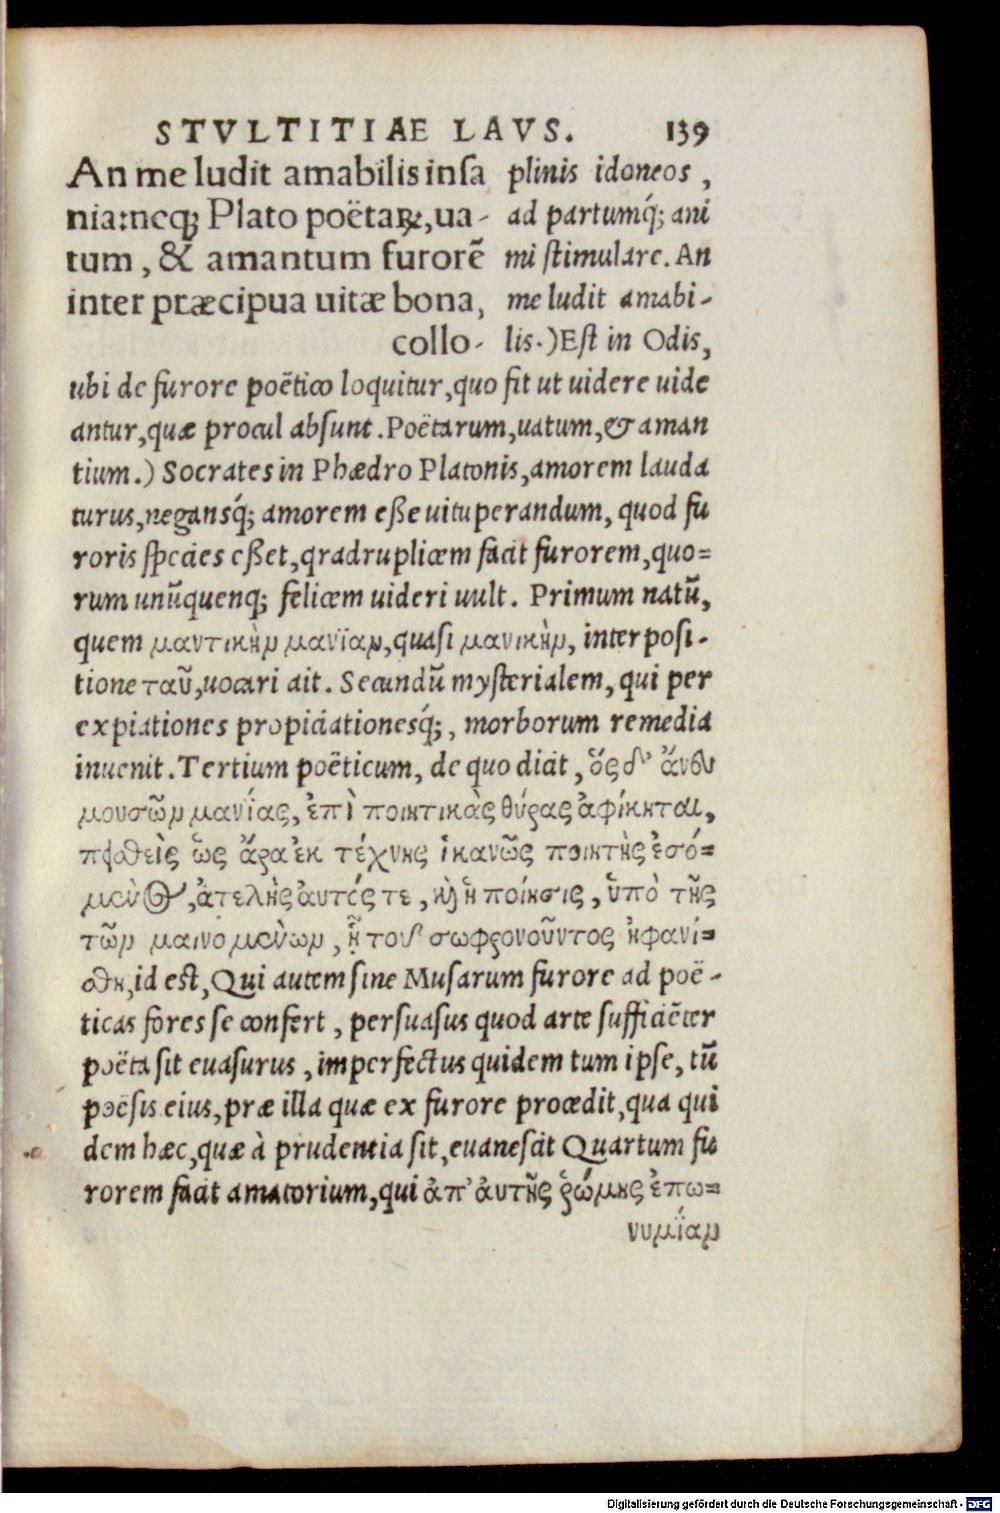 STVLTITIAE LAVS. 139
An me ludit amabilis insa
nia: neq; Plato poëtaꝝ, ua-
tum, & amantum furorē
inter præcipua uitæ bona,
collo-
plinis idoneos,
ad partumq́; ani
mi stimulare. An
me ludit amabi-
lis.) Est in Odis,
ubi de furore poëtico loquitur, quo fit ut uidere uide
antur, quæ procul absunt. Poëtarum, uatum, & aman
tium.) Socrates in Phædro Platonis, amorem lauda
turus, negansq́; amorem eße uituperandum, quod fu
roris species eßet, qradruplicem facit furorem, quo=
rum unūquenq; felicem uideri uult. Primum natū,
quem μαντικὴν μανίαν, quasi μανικὴν, interposi-
tione ταῦ, uocari ait. Secundū mysterialem, qui per
expiationes propiciationesq́;, morborum remedia
inuenit. Tertium poëticum, de quo dicit, ὅς δ' ἄνευ
μουσῶν μανίας, ἐπὶ ποιητικὰς θύρας ἀφίκηται,
πειθεὶς ὡς ἄρα ἐκ τέχνης ἱκανῶς ποιητὴς ἐσό=
μενος, ἀτελὴς ἀυτός τε, καὶ ἡ ποίησις, ὑπὸ τῆς
τῶν μαινομένων, ἡ τοῦ σωφρονοῦντος ἠφανί=
σθη, id est, Qui autem sine Musarum furore ad poë-
ticas fores se confert, persuasus quod arte sufficiēter
poëta sit euasurus, imperfectus quidem tum ipse, tū
poësis eius, præ illa quæ ex furore procedit, qua qui
dem hæc, quæ à prudentia sit, euanescit Quartum fu
rorem facit amatorium, qui ἀπ' ἀυτῆς ῥώμης ἐπω=
νυμίαν
Digitalisierung gefördert durch die Deutsche Forschungsgemeinschaft - DFG